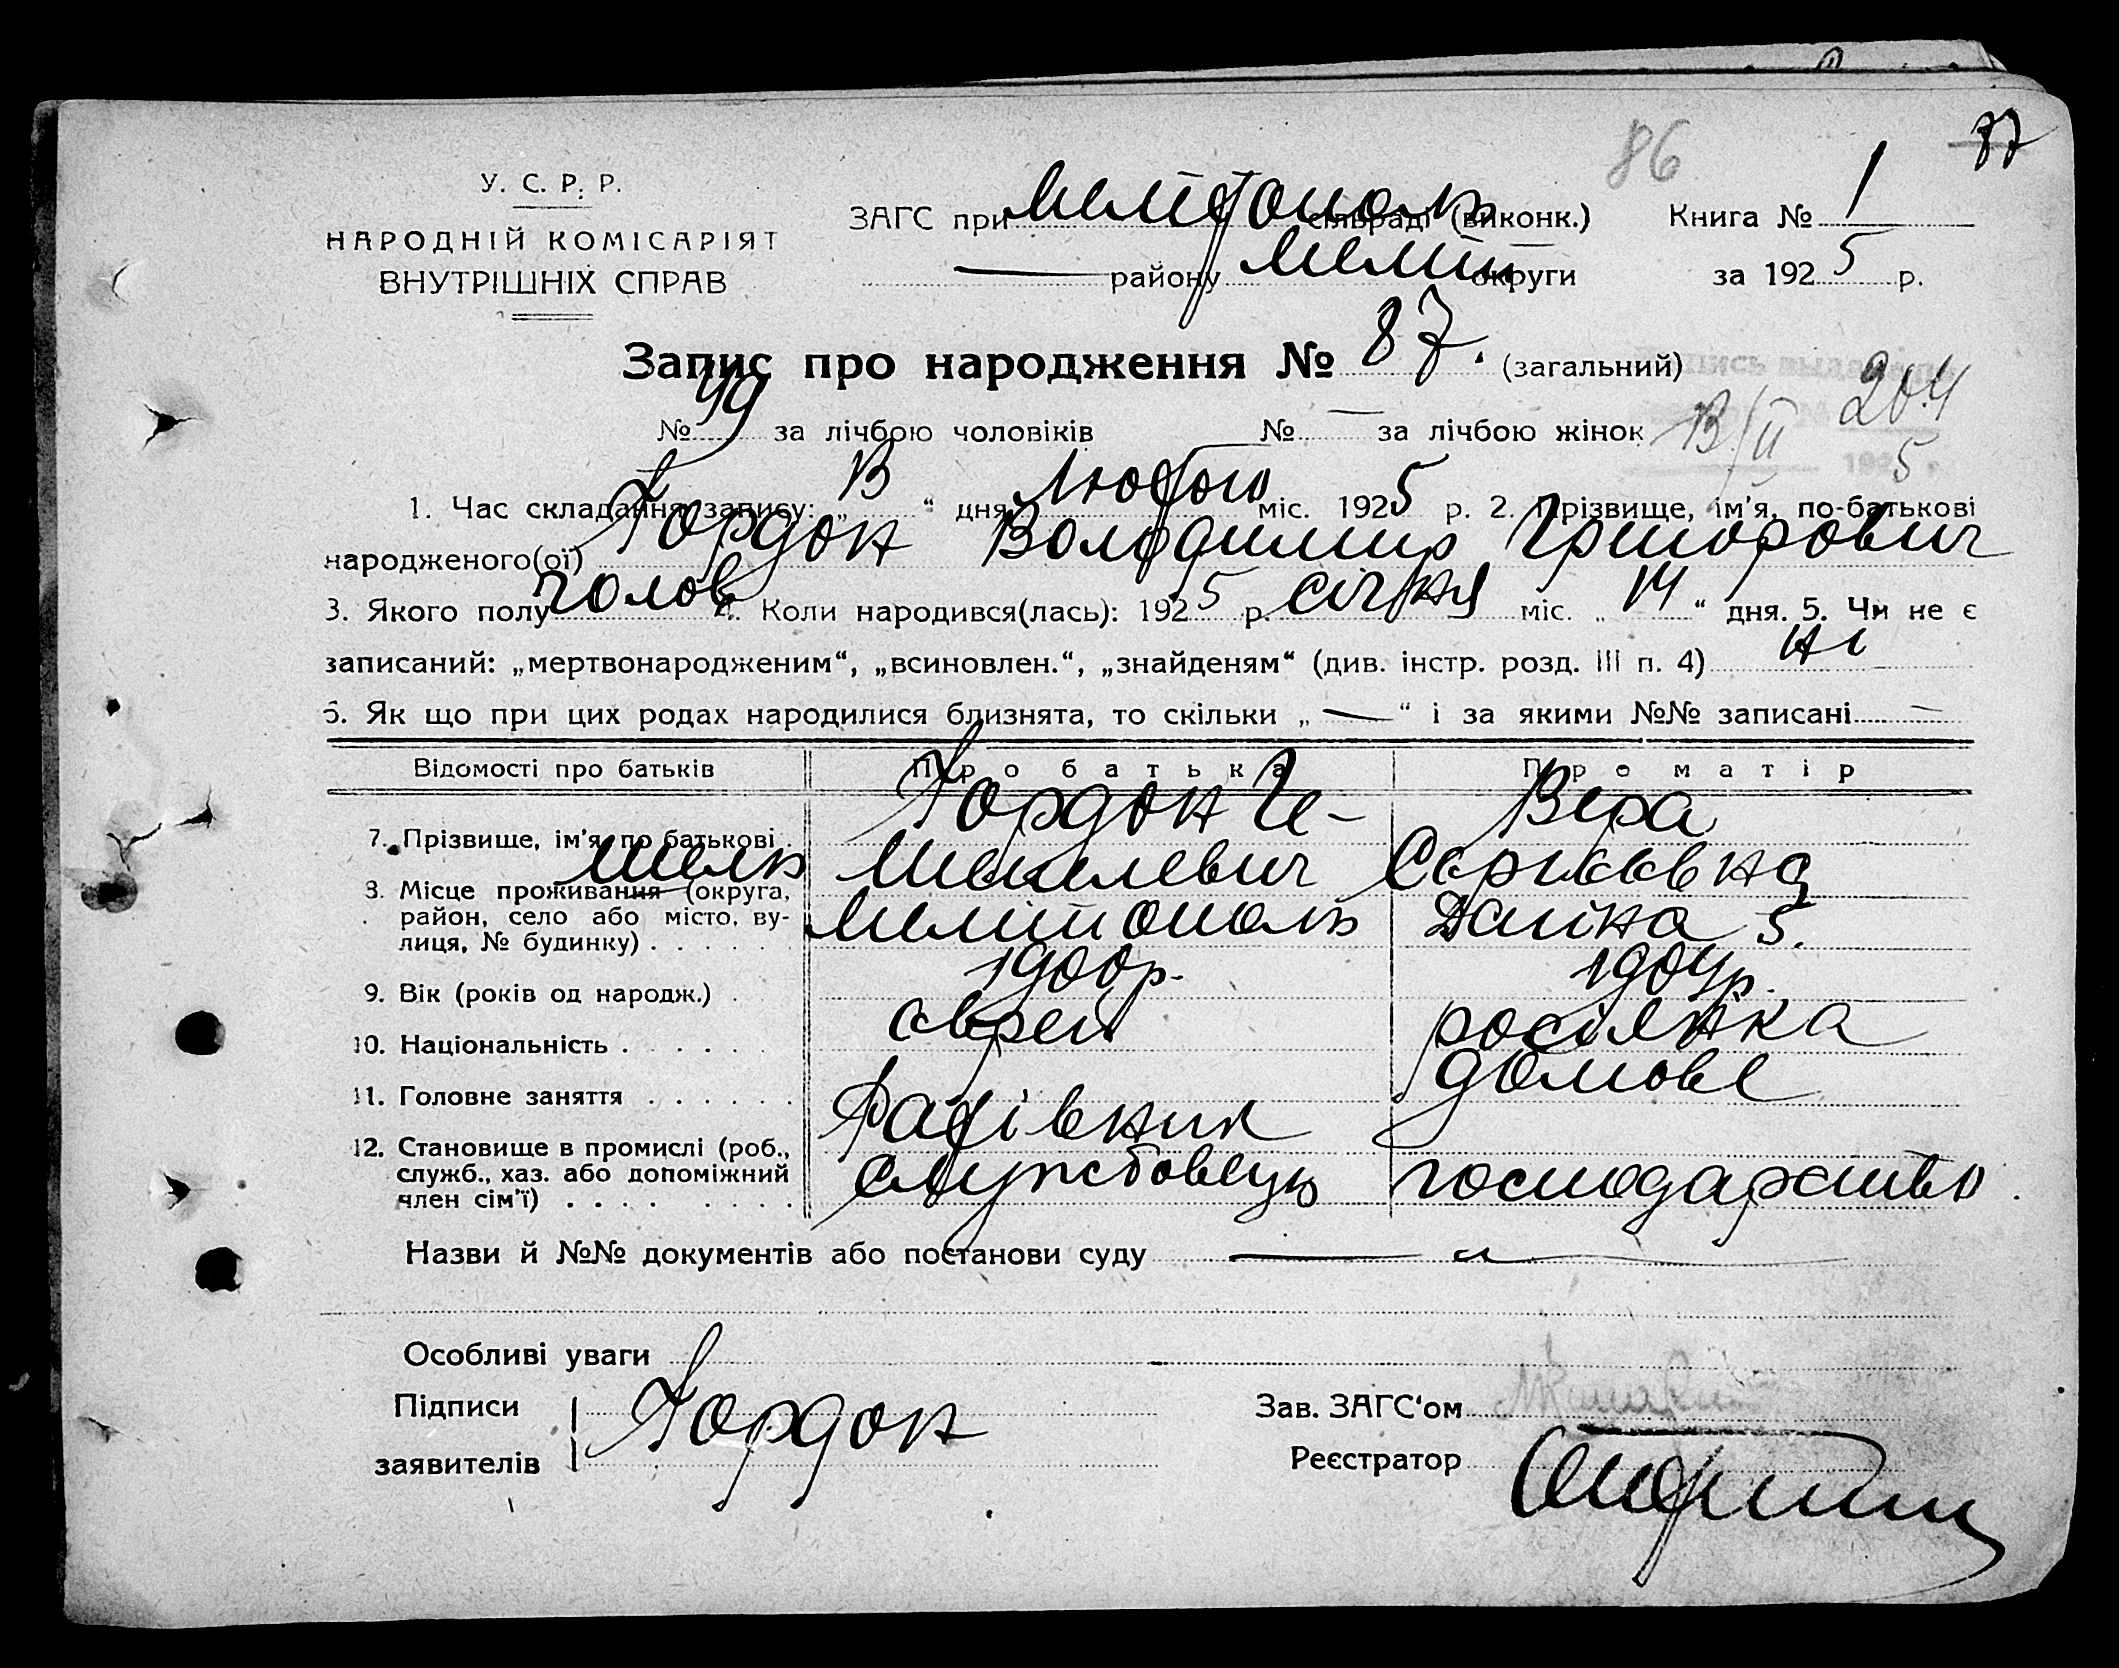 86 87
У. С. Р. Р.
НАРОДНІЙ КОМІСАРІЯТ
ВНУТРІШНІХ СПРАВ
ЗАГС при Мелітополь сільраді (виконк.) Книга № 1
— району Меліт округи за 1925 р.
Запис про народження № 87. (загальний)
№ 49 за лічбою чоловіків № — за лічбою жінок
13/II 204
5
1. Час складання запису: „13“ дня Лютого міс. 1925 р. 2. Прізвище, ім'я, по-батькові
народженого(ої) Гордон Володимир Григорович
3. Якого полу чолов 4. Коли народився(лась): 1925 р. січня міс. „14“ дня. 5. Чи не є
записаний: „мертвонародженим“, „всиновлен.“, „знайденям“ (див. інстр. розд. III п. 4) ні
6. Як що при цих родах народилися близнята, то скільки „—“ і за якими №№ записані —
Відомості про батьків Про батька Про матір
7. Прізвище, ім'я, по батькові Гордон Ге- Вера
шель Сергіївна
8. Місце проживання (округа,
район, село або місто, ву-
лиця, № будинку) Мелітополь 5.
9. Вік (років од народж.) 1900р. 1904р.
10. Національність єврей росіянка
11. Головне заняття домове
12. Становище в промислі (роб.,
служб., хаз. або допоміжний
член сім'ї) службовець господарство
Назви й №№ документів або постанови суду —
Особливі уваги
Підписи
заявителів Гордон
Зав. ЗАГС'ом
Реєстратор